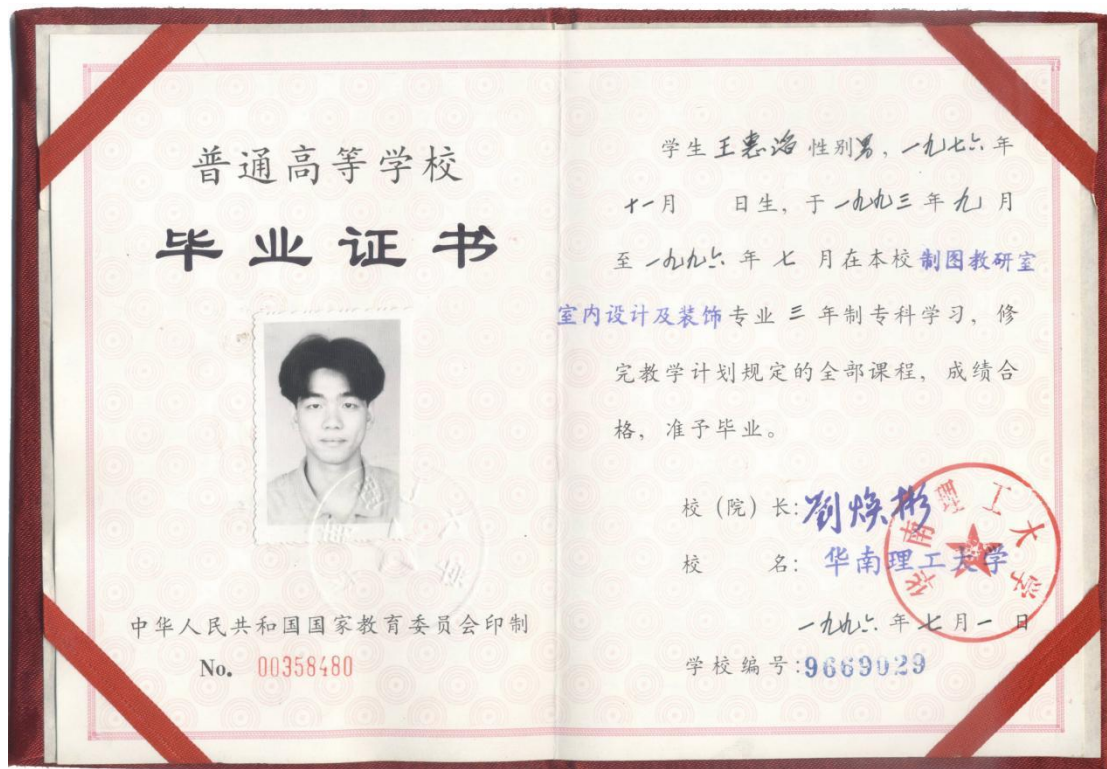 普通高等学校
毕业证书
中华人民共和国国家教育委员会印制
No. 00358480
学生王惠洛性别男，一九七六年
十一月 日生，于一九九三年九月
至一九九六年七月在本校制图教研室
室内设计及装饰专业三年制专科学习，修
完教学计划规定的全部课程，成绩合
格，准予毕业。
校（院）长：刘焕彬
校 名：华南理工大学
华南理工大学
一九九六年七月一日
学校编号：9669029